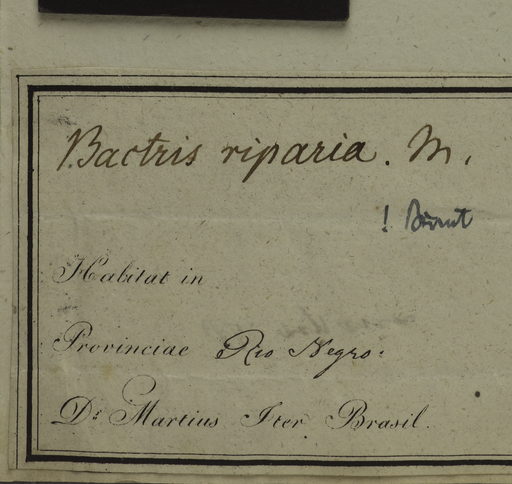 Bactris riparia. M.
! Burret
Habitat in
Provinciae Rio Negro.
Dr. Martius Iter Brasil.